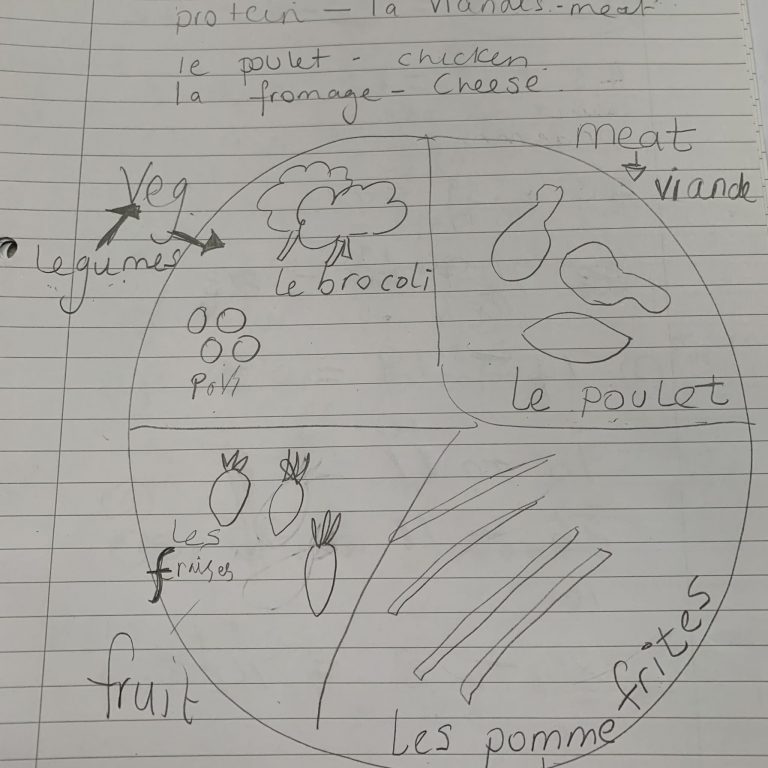 protein - la viandes - meat
le poulet - chicken
la fromage - Cheese
meat
viande
Veg
Legumes
le brocoli
le poulet
Les
fraises
fruit
Les pomme frites